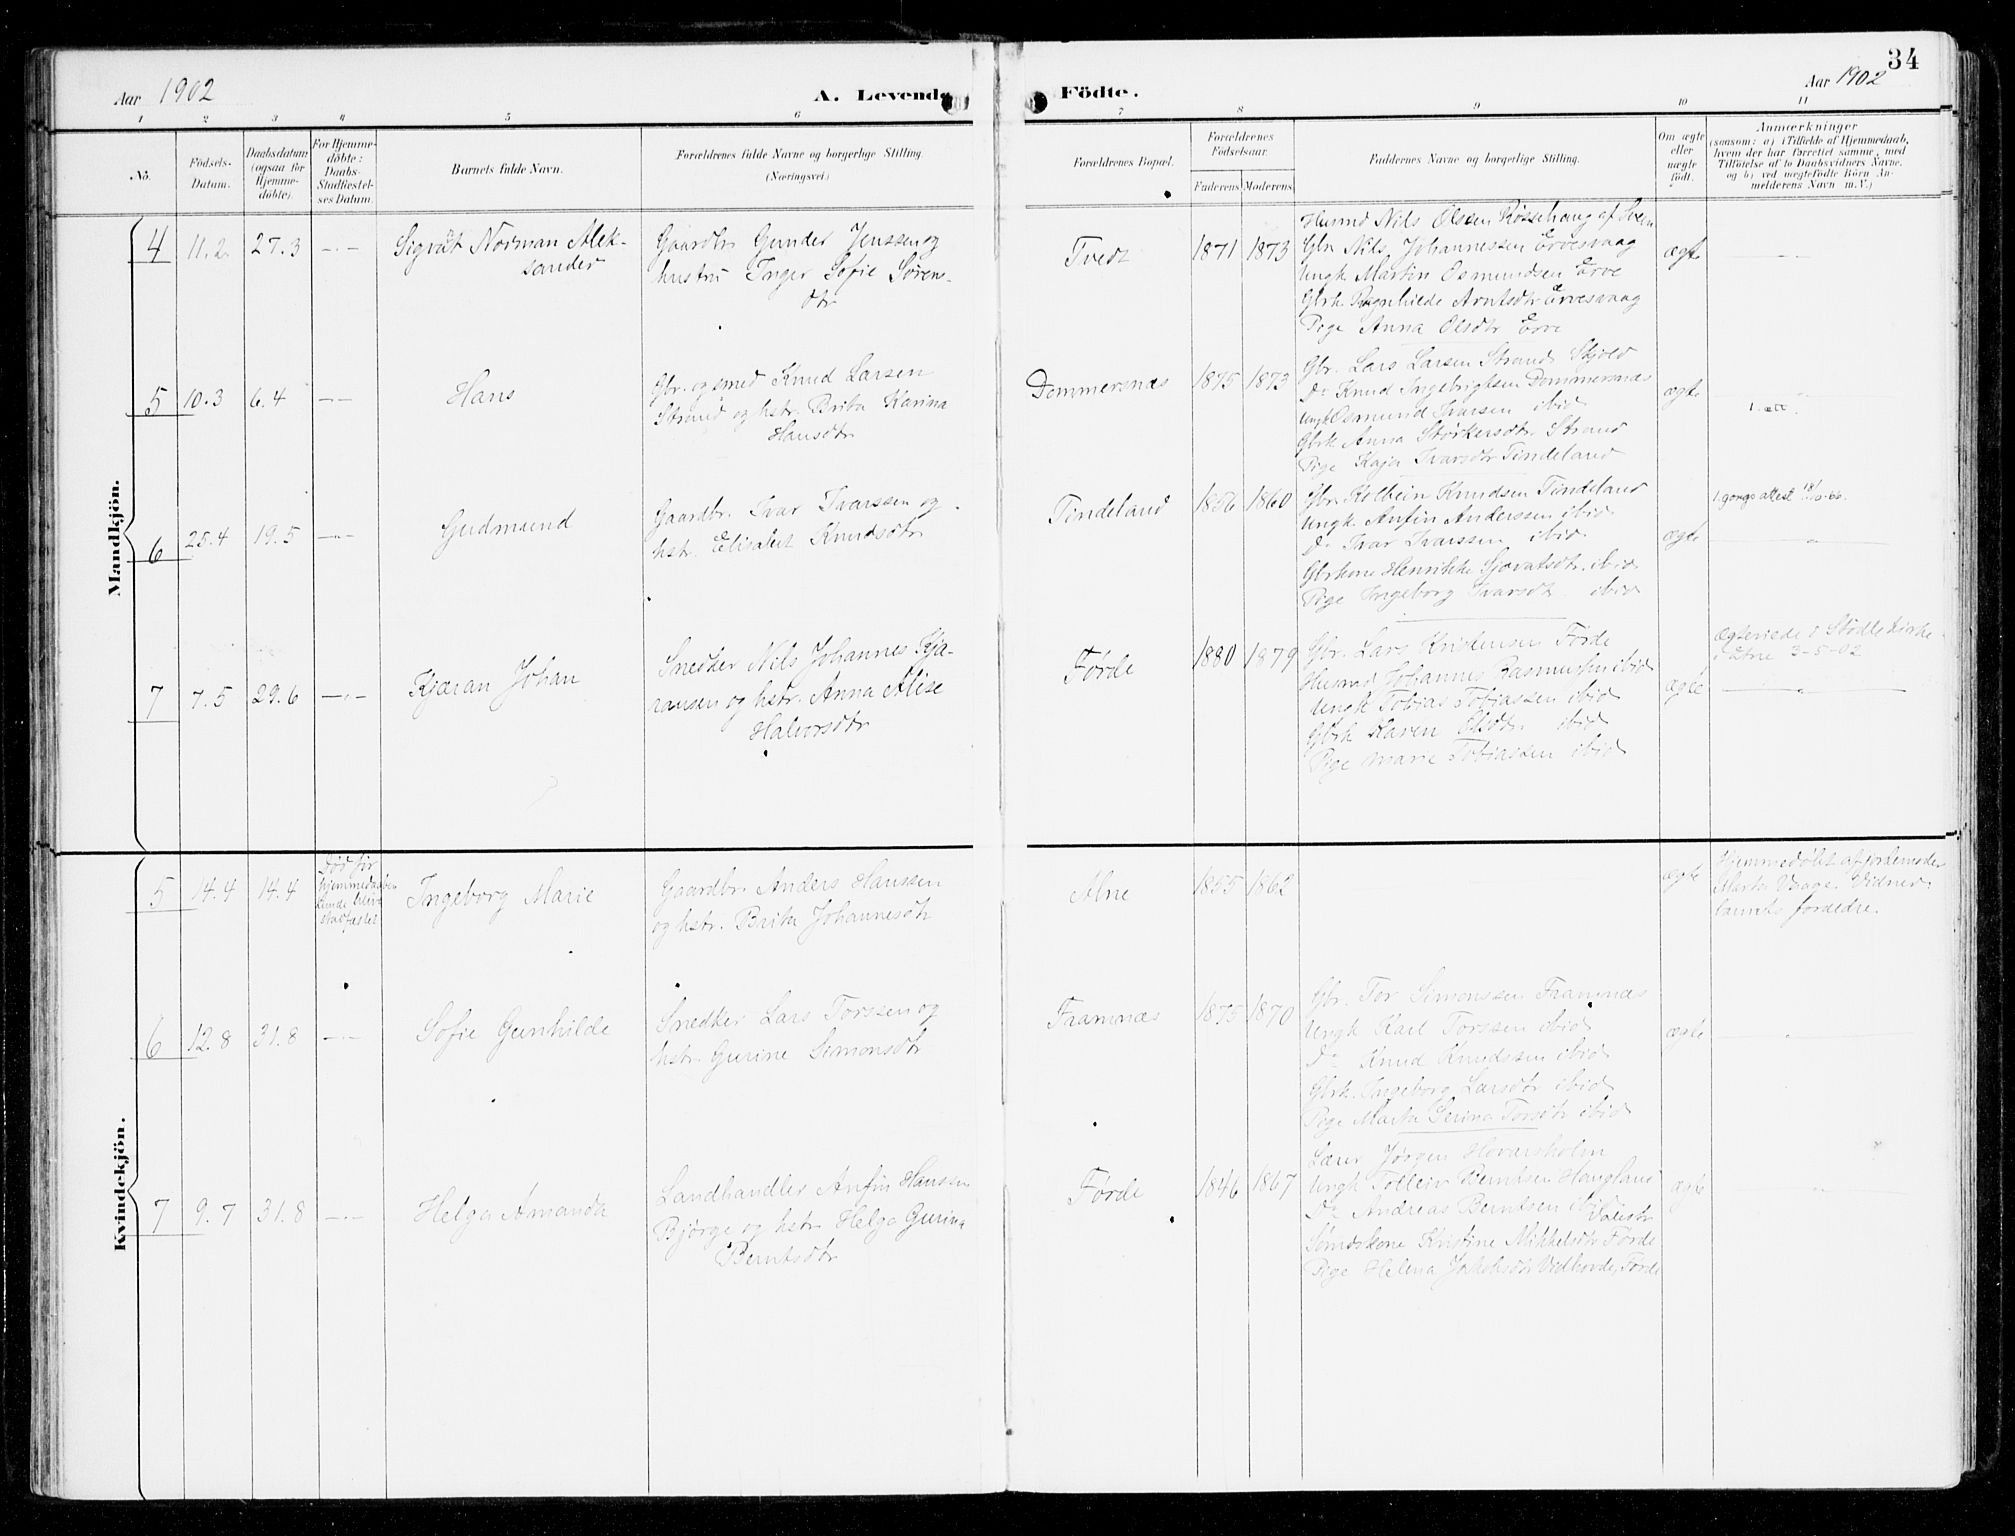 34
Aar 1902
A. Levende Födte.
Aar 1902
1 2 3 4 5 6 7 8 9 10 11
No.
Födsels-Datum.
Daabsdatum (ogsaa for Hjemme-döbte).
For Hjemme-döbte: Daabs-Stadfæstel-ses Datum.
Barnets fulde Navn.
Forældrenes fulde Navne og borgerlige Stilling. (Næringsvei.)
Forældrenes Bopæl.
Forældrenes Födselsaar.
Faderens Moderens
Faddernes Navne og borgerlige Stilling.
Om ægte eller uægte födt.
Anmærkninger
(saasom: a) i Tilfælde af Hjemmedaab, hvem der har forrettet samme, med Tilföielse af to Daabsvidners Navne. og b) ved uægtefödte Börn An-melderens Navn m.V.)
Mandkjön.
4 11.2. 27.3 —"—
Sigvat Norman Alek-
sander
Gaardbr Gunder Jenssen og
hustru Inger Sofie Søren-
dtr
Tvedt
1871 1873
Husmd Nils Olsen Røssehaug af Sveen
Gbr Nils Johannessen Ervesvaag
Ungk Martin Osmundsen Erve
Gbrk. Ragnhilde Arntsdtr Ervesvaag
Pige Anna Olsdtr Erve
ægte
5 10.3 6.4 —"—
Hans
Gbr. og smed Knud Larsen
Strand og hstr. Brita Karina
Hansdtr
Dommersnæs
1875 1873
Gbr. Lars Larsen Strand Skjold
Do Knud Ingebrigtsen Dommersnæs
Ungk Osmund Ivarsen ibid
Gbrk Anna Størkersdtr. Strand
Pige Kaja Ivarsdtr Tindeland
ægte
1. att.
6 25.4 19.5 —"—
Gudmund
Gaardbr. Ivar Ivarssen og
hstr. Elisabet Knudsdtr
Tindeland
1856 1860
Gbr. Kolbein Knudsen Tindeland
Ungk. Anfin Anderssen ibid
Do Ivar Ivarssen ibid
Gbrkone Henrikke Sjovatsdtr. ibid
Pige Ingeborg Ivarsdtr ibid
ægte
1. gongs attest 18/10-66.
7 7.5 29.6 —"—
Kjæran Johan
Snedker Nils Johannes Kjæ-
ransen og hstr. Anna Alise
Halvorsdtr
Førde
1880 1879
Gbr. Lars Kristensen Førde
Husmd Johannes Rasmussen ibid
Ungk Tobias Tobiassen ibid
Gbrk Karen Olsdtr ibid
Pige Marie Tobiassen ibid
ægte
Ægteviede i Stødle kirke
i Etne 3-5-02
Kvindekjön.
5 14.4 14.4
Død før
hjemmedaaben
kunde blive
stadfæstet
Ingeborg Marie
Gaardbr. Anders Hanssen
og hstr. Brita Johannesdtr
Alne
1855 1862
ægte
Hjemmedøbt af jordemoder
Marta Vaage. Vidner
barnets forældre.
6 12.8 31.8 —"—
Sofie Gunhilde
Snedker Lars Torssen og
hstr. Gurine Simonsdtr
Framnæs
1875 1870
Gbr. Tor Simonssen Framnæs
Ungk Karl Torssen ibid
Do Knud Knudssen ibid
Gbrk. Ingeborg Larsdtr ibid
Pige Marta Serina Torsdtr ibid
ægte
7 9.7 31.8 —"—
Helga Amanda
Landhandler Anfin Hanssen
Bjørge og hstr Helga Gurina
Berntsdtr
Førde
1846 1867
Lærer Jørgen Hovarsholm
Ungk Tollein Berntsen Haugland
Do Andreas Berntsen ibid
Sømdskone Kristine Mikkelsdtr Førde
Pige Helena Jakobsdtr Vidhovde, Førde
ægte